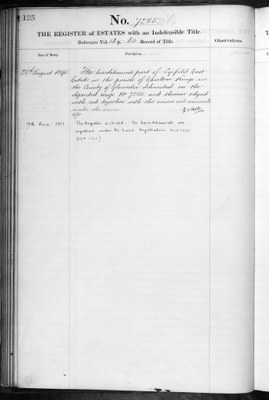 125
No. 7285
THE REGISTER of ESTATES with an Indefeasible Title.
Reference Vol. Record of Title.
Date of Entry. Description. Observations.
25th August 1898 The hereditament part of Lyefield East
Estate in the parish of Charlton Kings in
the County of Gloucester delineated on the
deposited map No 7285 and thereon edged
with red together with the mines and minerals
under the same
Register closed. The hereditaments are
registered under the Land Registration Act 1925